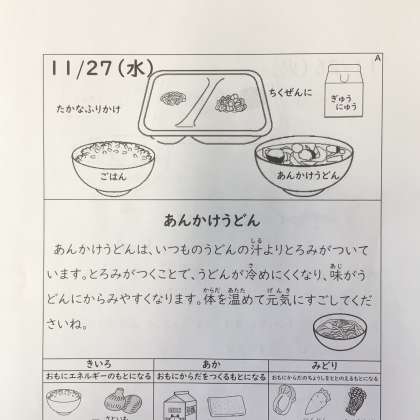 A
11/27(水)
たかなふりかけ
ちくぜんに
ぎゅう
にゅう
ごはん
あんかけうどん
あんかけうどん
あんかけうどんは、いつものうどんの汁よりとろみがついて
います。とろみがつくことで、うどんが冷めにくくなり、味がう
どんにからみやすくなります。体を温めて元気にすごしてくだ
さいね。
きいろ
あか
みどり
おもにエネルギーのもとになる
おもにからだをつくるもとになる
おもにからだのちょうしをととのえるもとになる